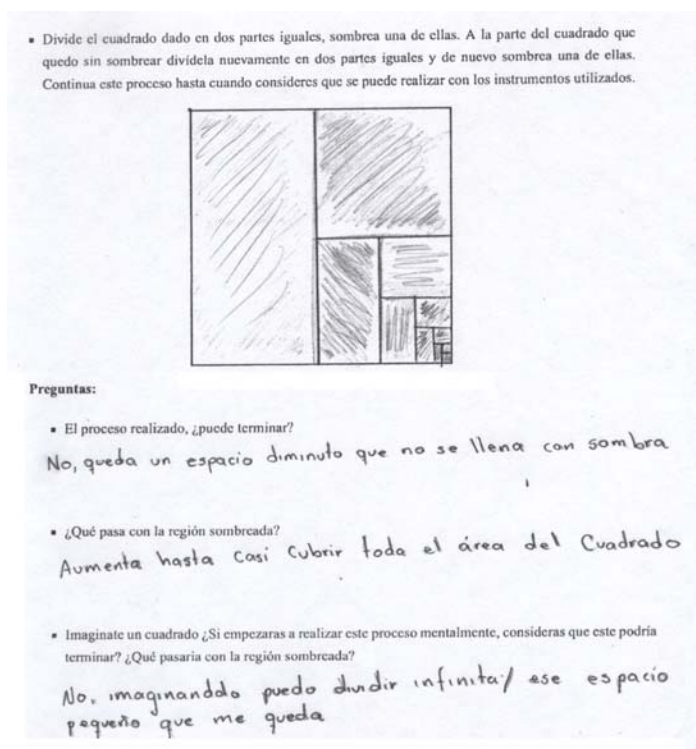 ▪ Divide el cuadrado dado en dos partes iguales, sombrea una de ellas. A la parte del cuadrado que
quedo sin sombrear divídela nuevamente en dos partes iguales y de nuevo sombrea una de ellas.
Continua este proceso hasta cuando consideres que se puede realizar con los instrumentos utilizados.
Preguntas:
▪ El proceso realizado, ¿puede terminar?
No, queda un espacio diminuto que no se llena con sombra
▪ ¿Qué pasa con la región sombreada?
Aumenta hasta casi cubrir toda el área del Cuadrado
▪ Imaginate un cuadrado ¿Si empezaras a realizar este proceso mentalmente, consideras que este podría
terminar? ¿Qué pasaria con la región sombreada?
No, imaginanddo puedo dividir infinita/ ese espacio
pequeño que me queda